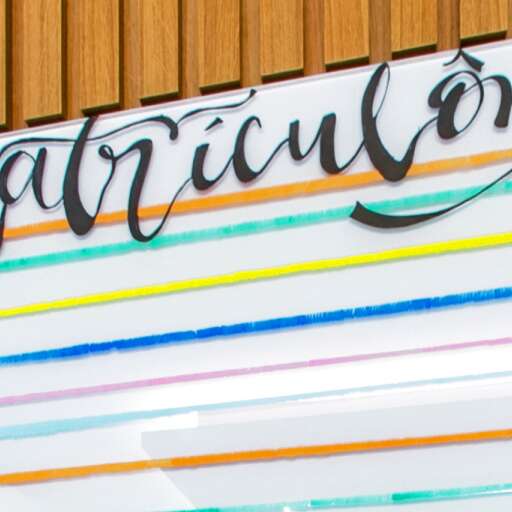 atriculôn